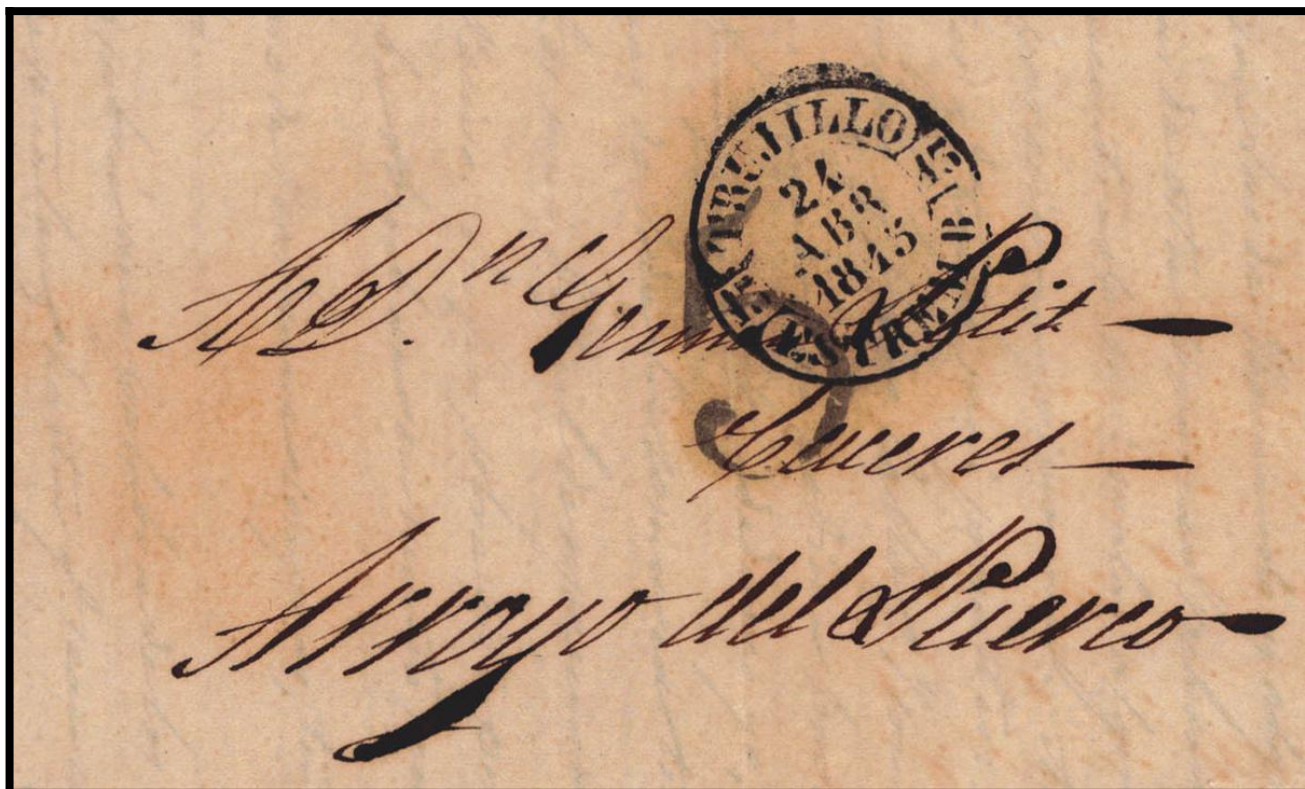 TRUJILLO
24
ABR
1845
ESTREM B
A D.n German Petit —
Caceres —
Arroyo del Puerco